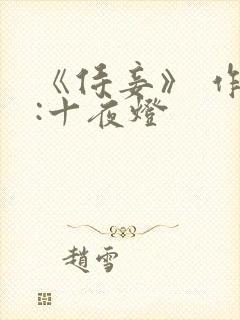 《侍妾》 作
:十夜燈
趙雪